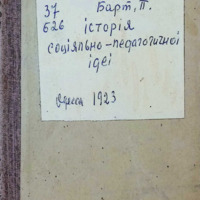 37 Барт, П.
Б26 історія
соціяльно-педагогичної
ідеї
Одеса 1923